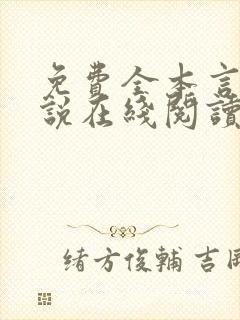 免費全本言
說在綫閱讀
緒方俊輔 吉岡